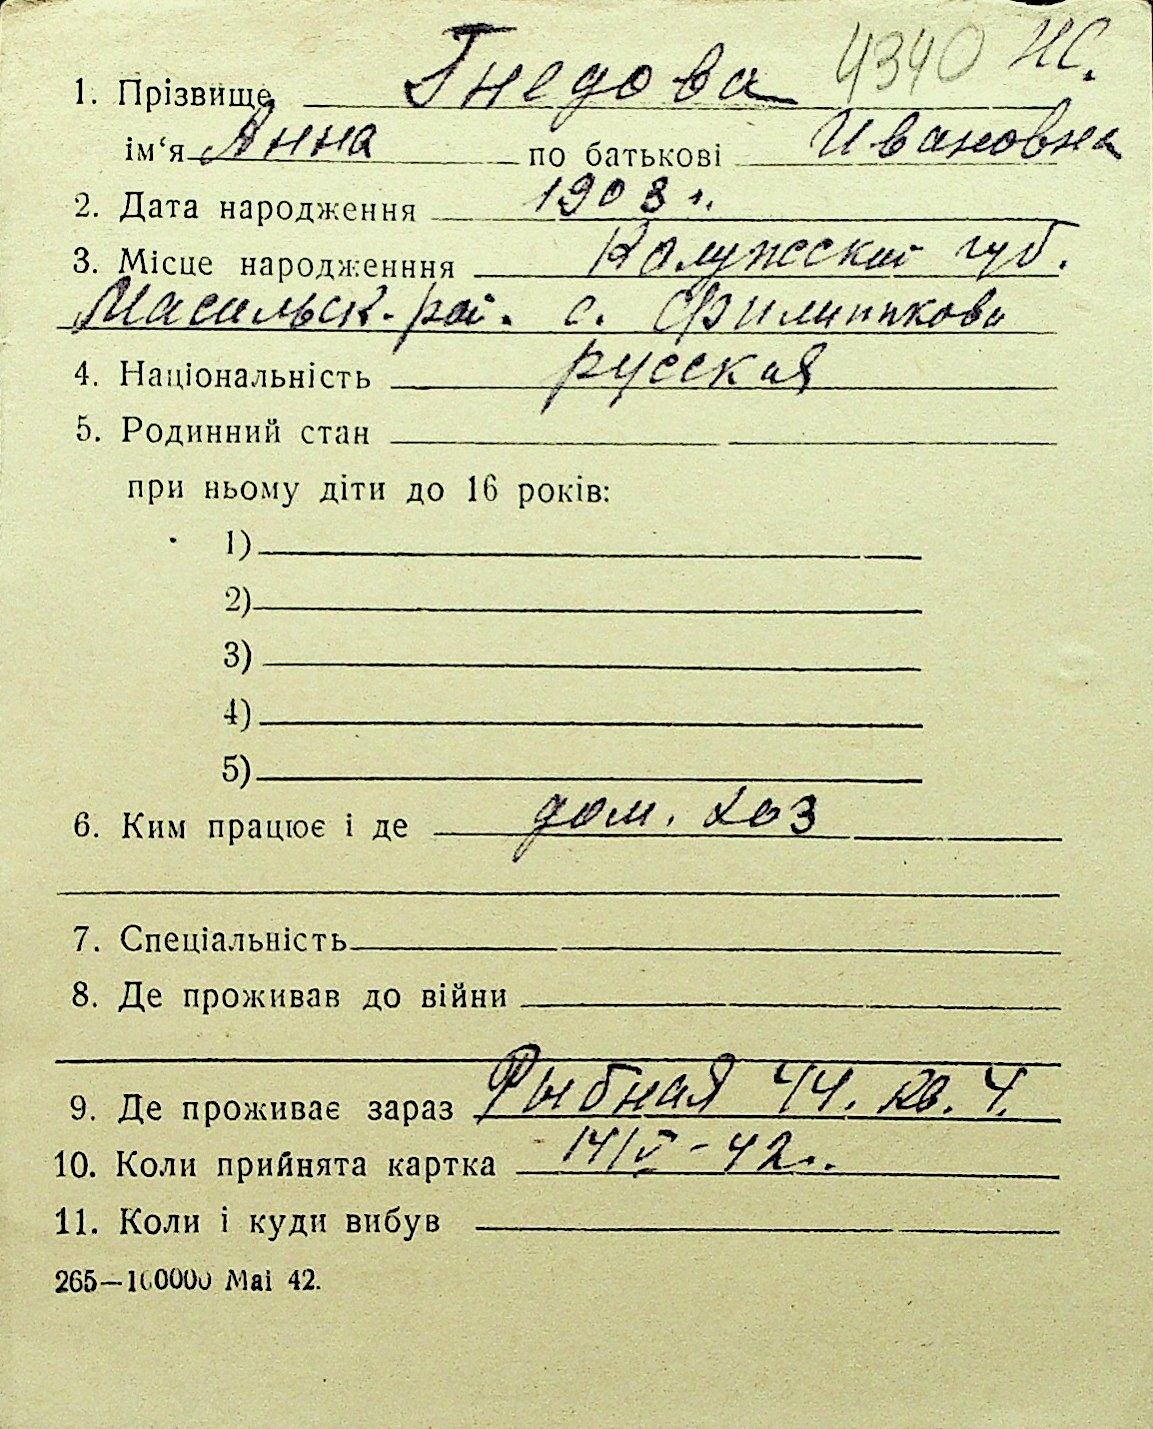 1. Прізвище Гнедова 4340 НС.
ім‘я Анна по батькові Ивановна
2. Дата народження 1908 г.
3. Місце народженння Калужской губ.
Масальск. рай. с. Филипково
4. Національність русская
5. Родинний стан
при ньому діти до 16 років:
1)
2)
3)
4)
5)
6. Ким працює і де дом. хоз
7. Спеціальність
8. Де проживав до війни
9. Де проживає зараз Рыбная 44. кв. 4.
10. Коли прийнята картка 14/V - 42 г.
11. Коли і куди вибув
265—100000 Mai 42.